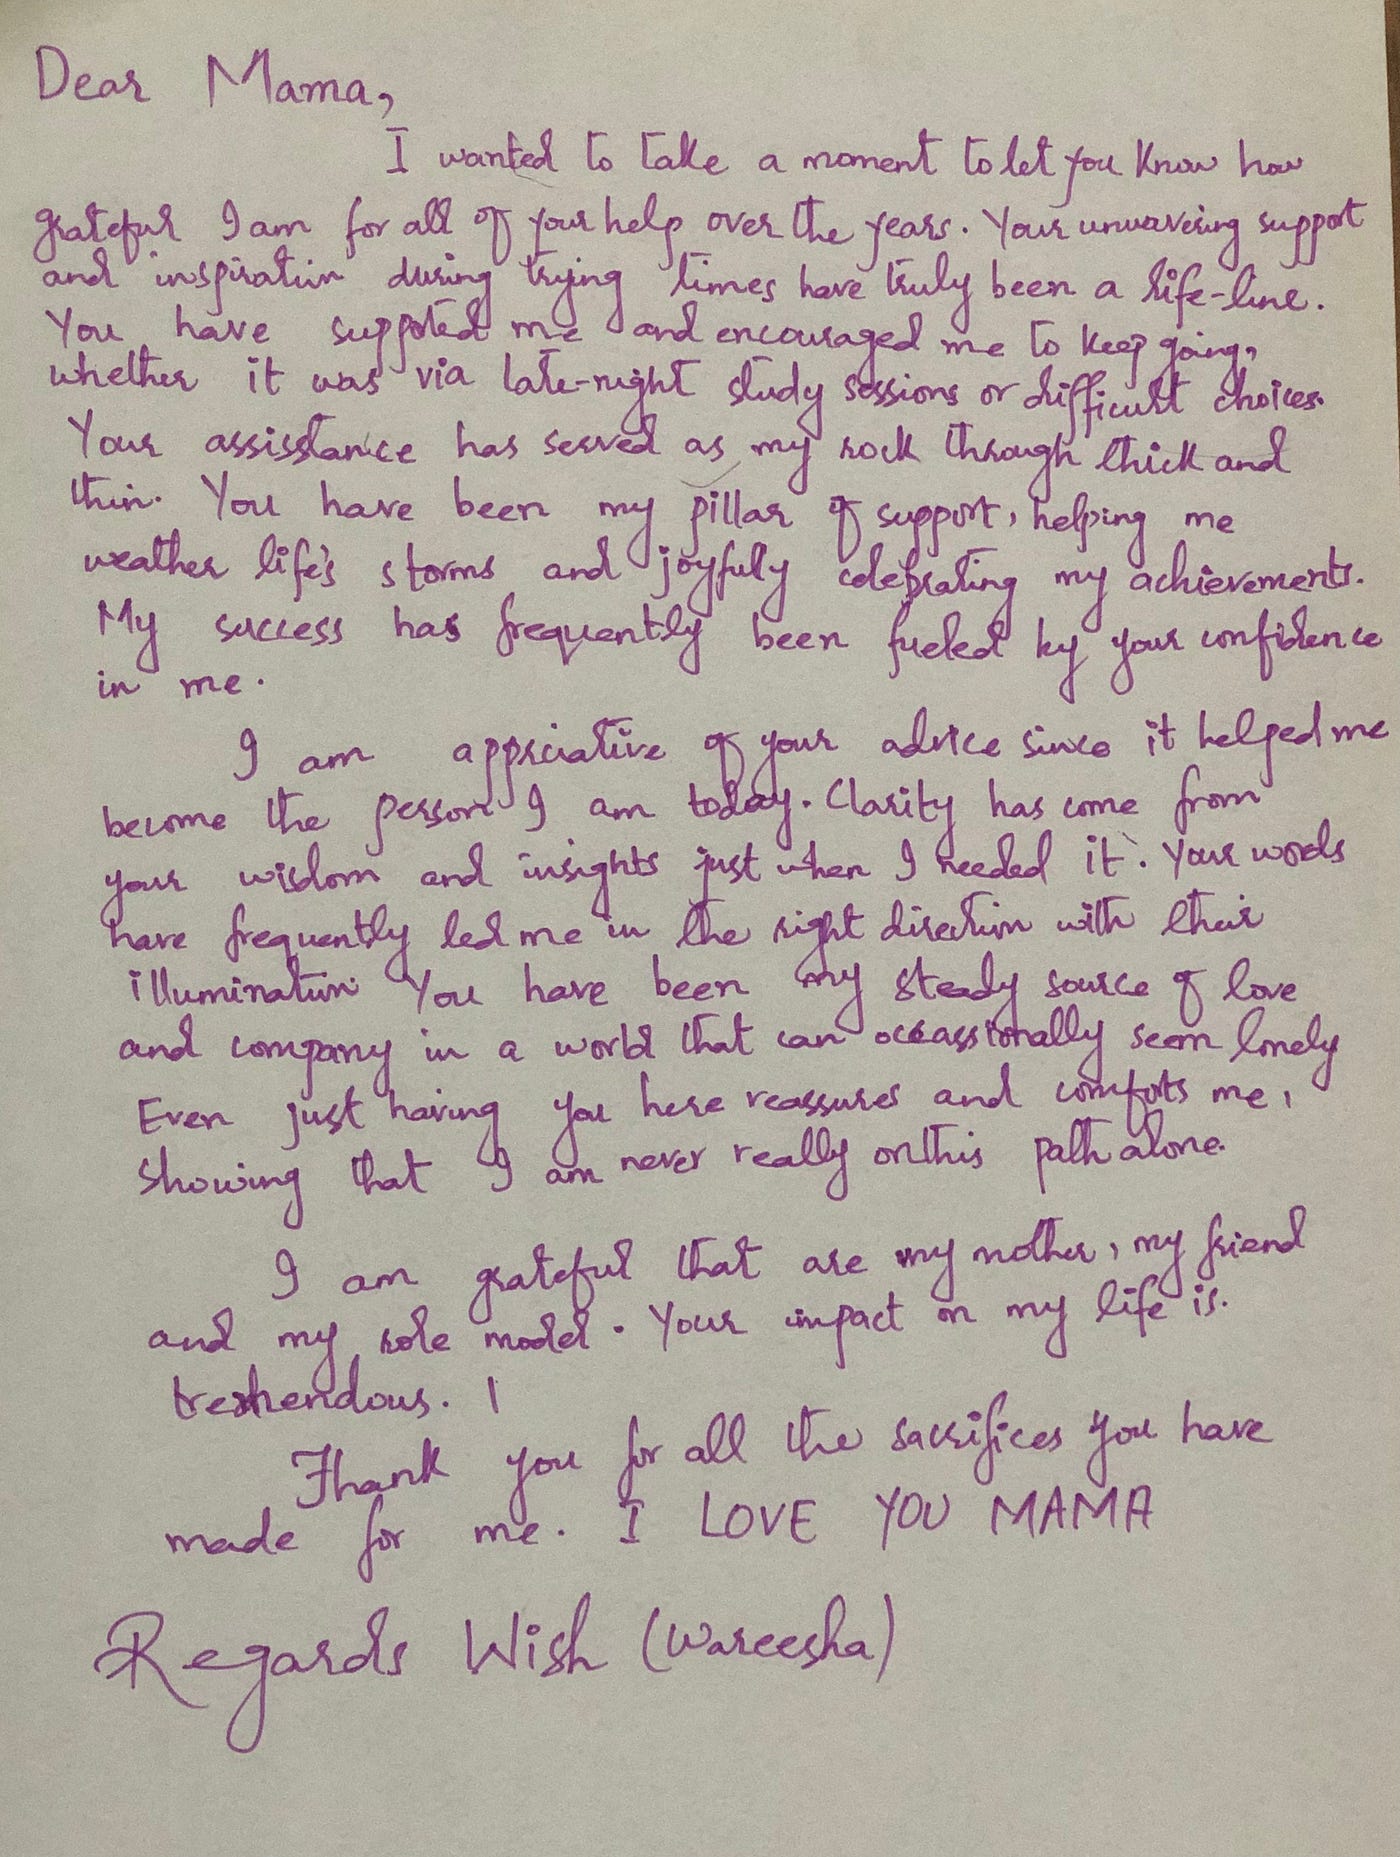 Dear Mama,
I wanted to take a moment to let you know how
grateful I am for all of your help over the years. Your unwavering support
and inspiration during trying times have truly been a life-line.
You have suppoted me and encouraged me to keep going,
whether it was via late-night study sessions or difficult choices.
Your assisstance has served as my rock through thick and
thin. You have been my pillar of support, helping me
weather life's storms and joyfuly celebrating my achievements.
My success has frequently been fueled by your confidence
in me.
I am appriciative of your advice since it helped me
become the person I am today. Clarity has come from
your wisdom and insights just when I needed it. Your words
have frequently led me in the right direction with their
illumination. You have been my steady source of love
and company in a world that can occassionally seem lonely
Even just having you here reassures and comforts me,
showing that I am never really on this path alone.
I am grateful that are my mother, my friend
and my role model. Your impact on my life is.
tremendous. I
Thank you for all the sacrifices you have
made for me. I LOVE YOU MAMA
Regards Wish (Wareesha)